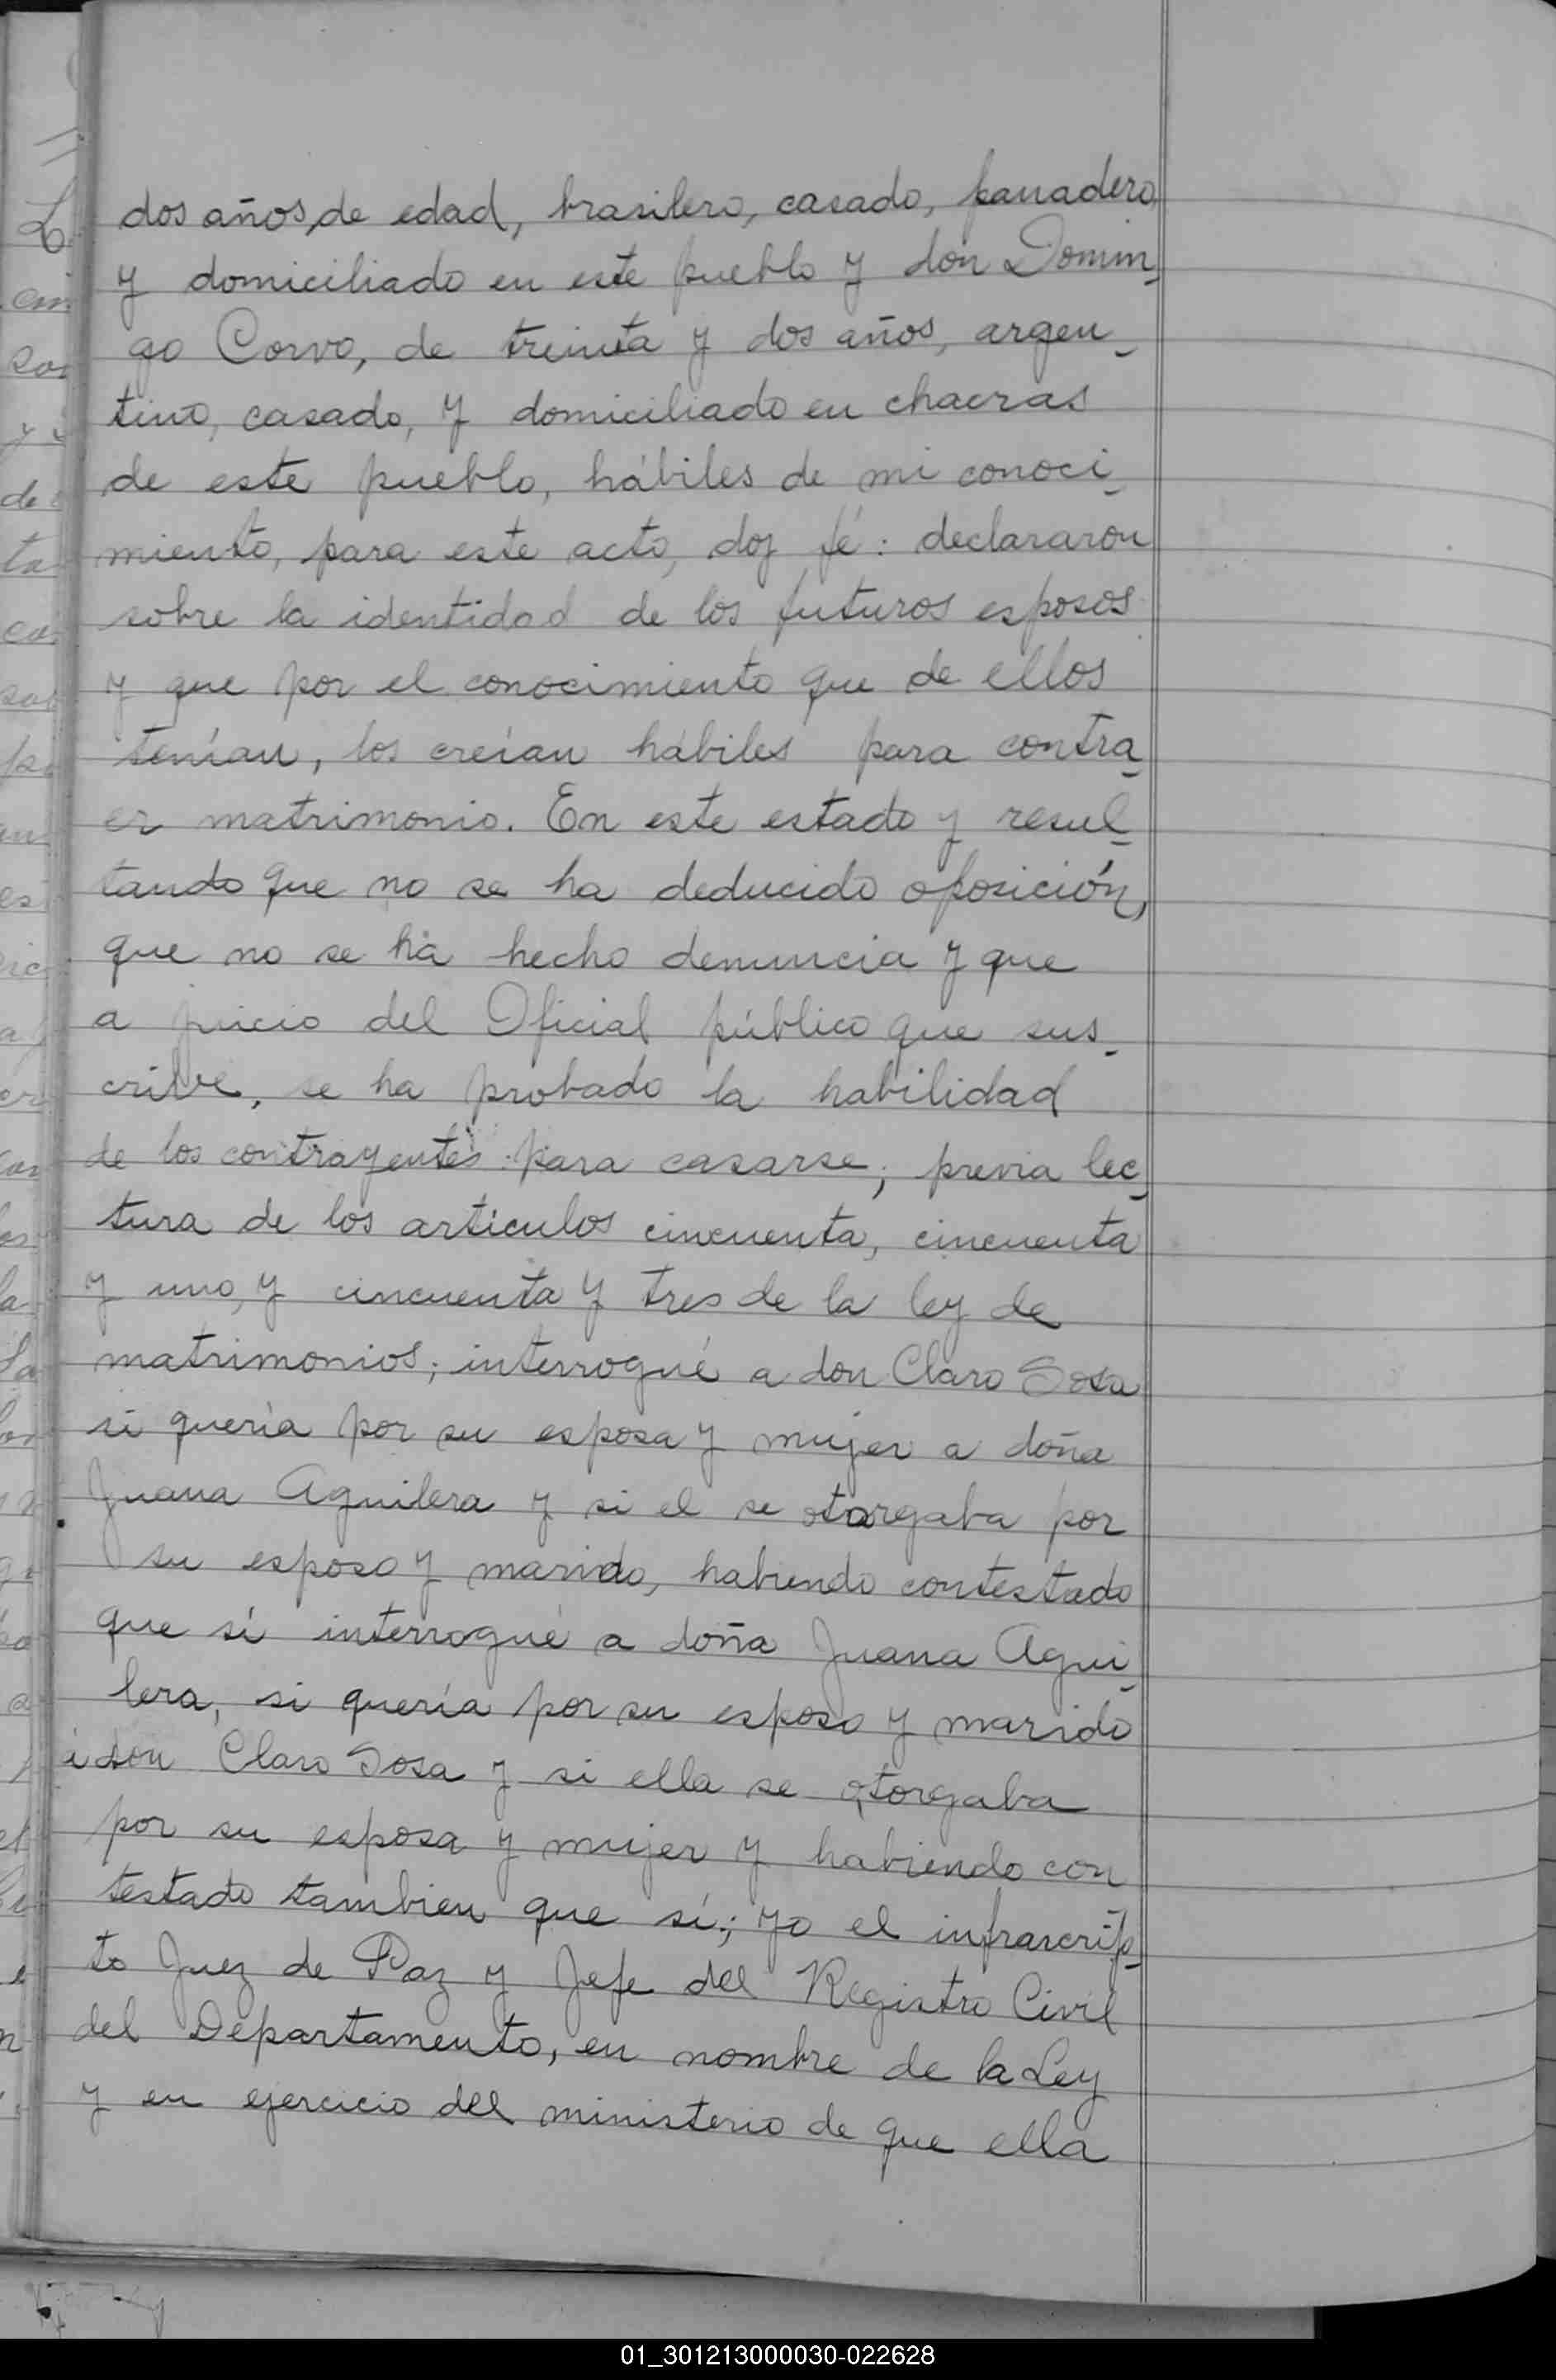 dos años, de edad, brasilero, casado, panadero,
y domiciliado en este pueblo y don Domin-
go Corvo, de treinta y dos años, argen-
tino, casado, y domiciliado en chacras
de este pueblo, hábiles de mi conoci-
miento, para este acto, doy fé: declararon
sobre la identidad de los futuros esposos
y que por el conocimiento que de ellos
tenían, los creían hábiles para contra-
er matrimonio. En este estado y resul-
tando que no se ha deducido oposición,
que no se ha hecho denuncia y que
a juicio del Oficial público que sus-
cribe, se ha probado la habilidad
de los contrayentes para casarse; previa lec-
tura de los artículos cincuenta, cincuenta
y uno, y cincuenta y tres de la ley de
matrimonios; interrogué a don Claro Sosa
si quería por su esposa y mujer a doña
Juana Aguilera y si el se otorgaba por
su esposo y marido, habiendo contestado
que sí interrogué a doña Juana Agui-
lera, si quería por su esposo y marido
a don Claro Sosa y si ella se otorgaba
por su esposa y mujer y habiendo con
testado tambien que sí; yo el infrascrip-
to Juez de Paz y Jefe del Registro Civil
del Departamento, en nombre de la Ley
y en ejercicio del ministerio de que ella
01_301213000030-022628